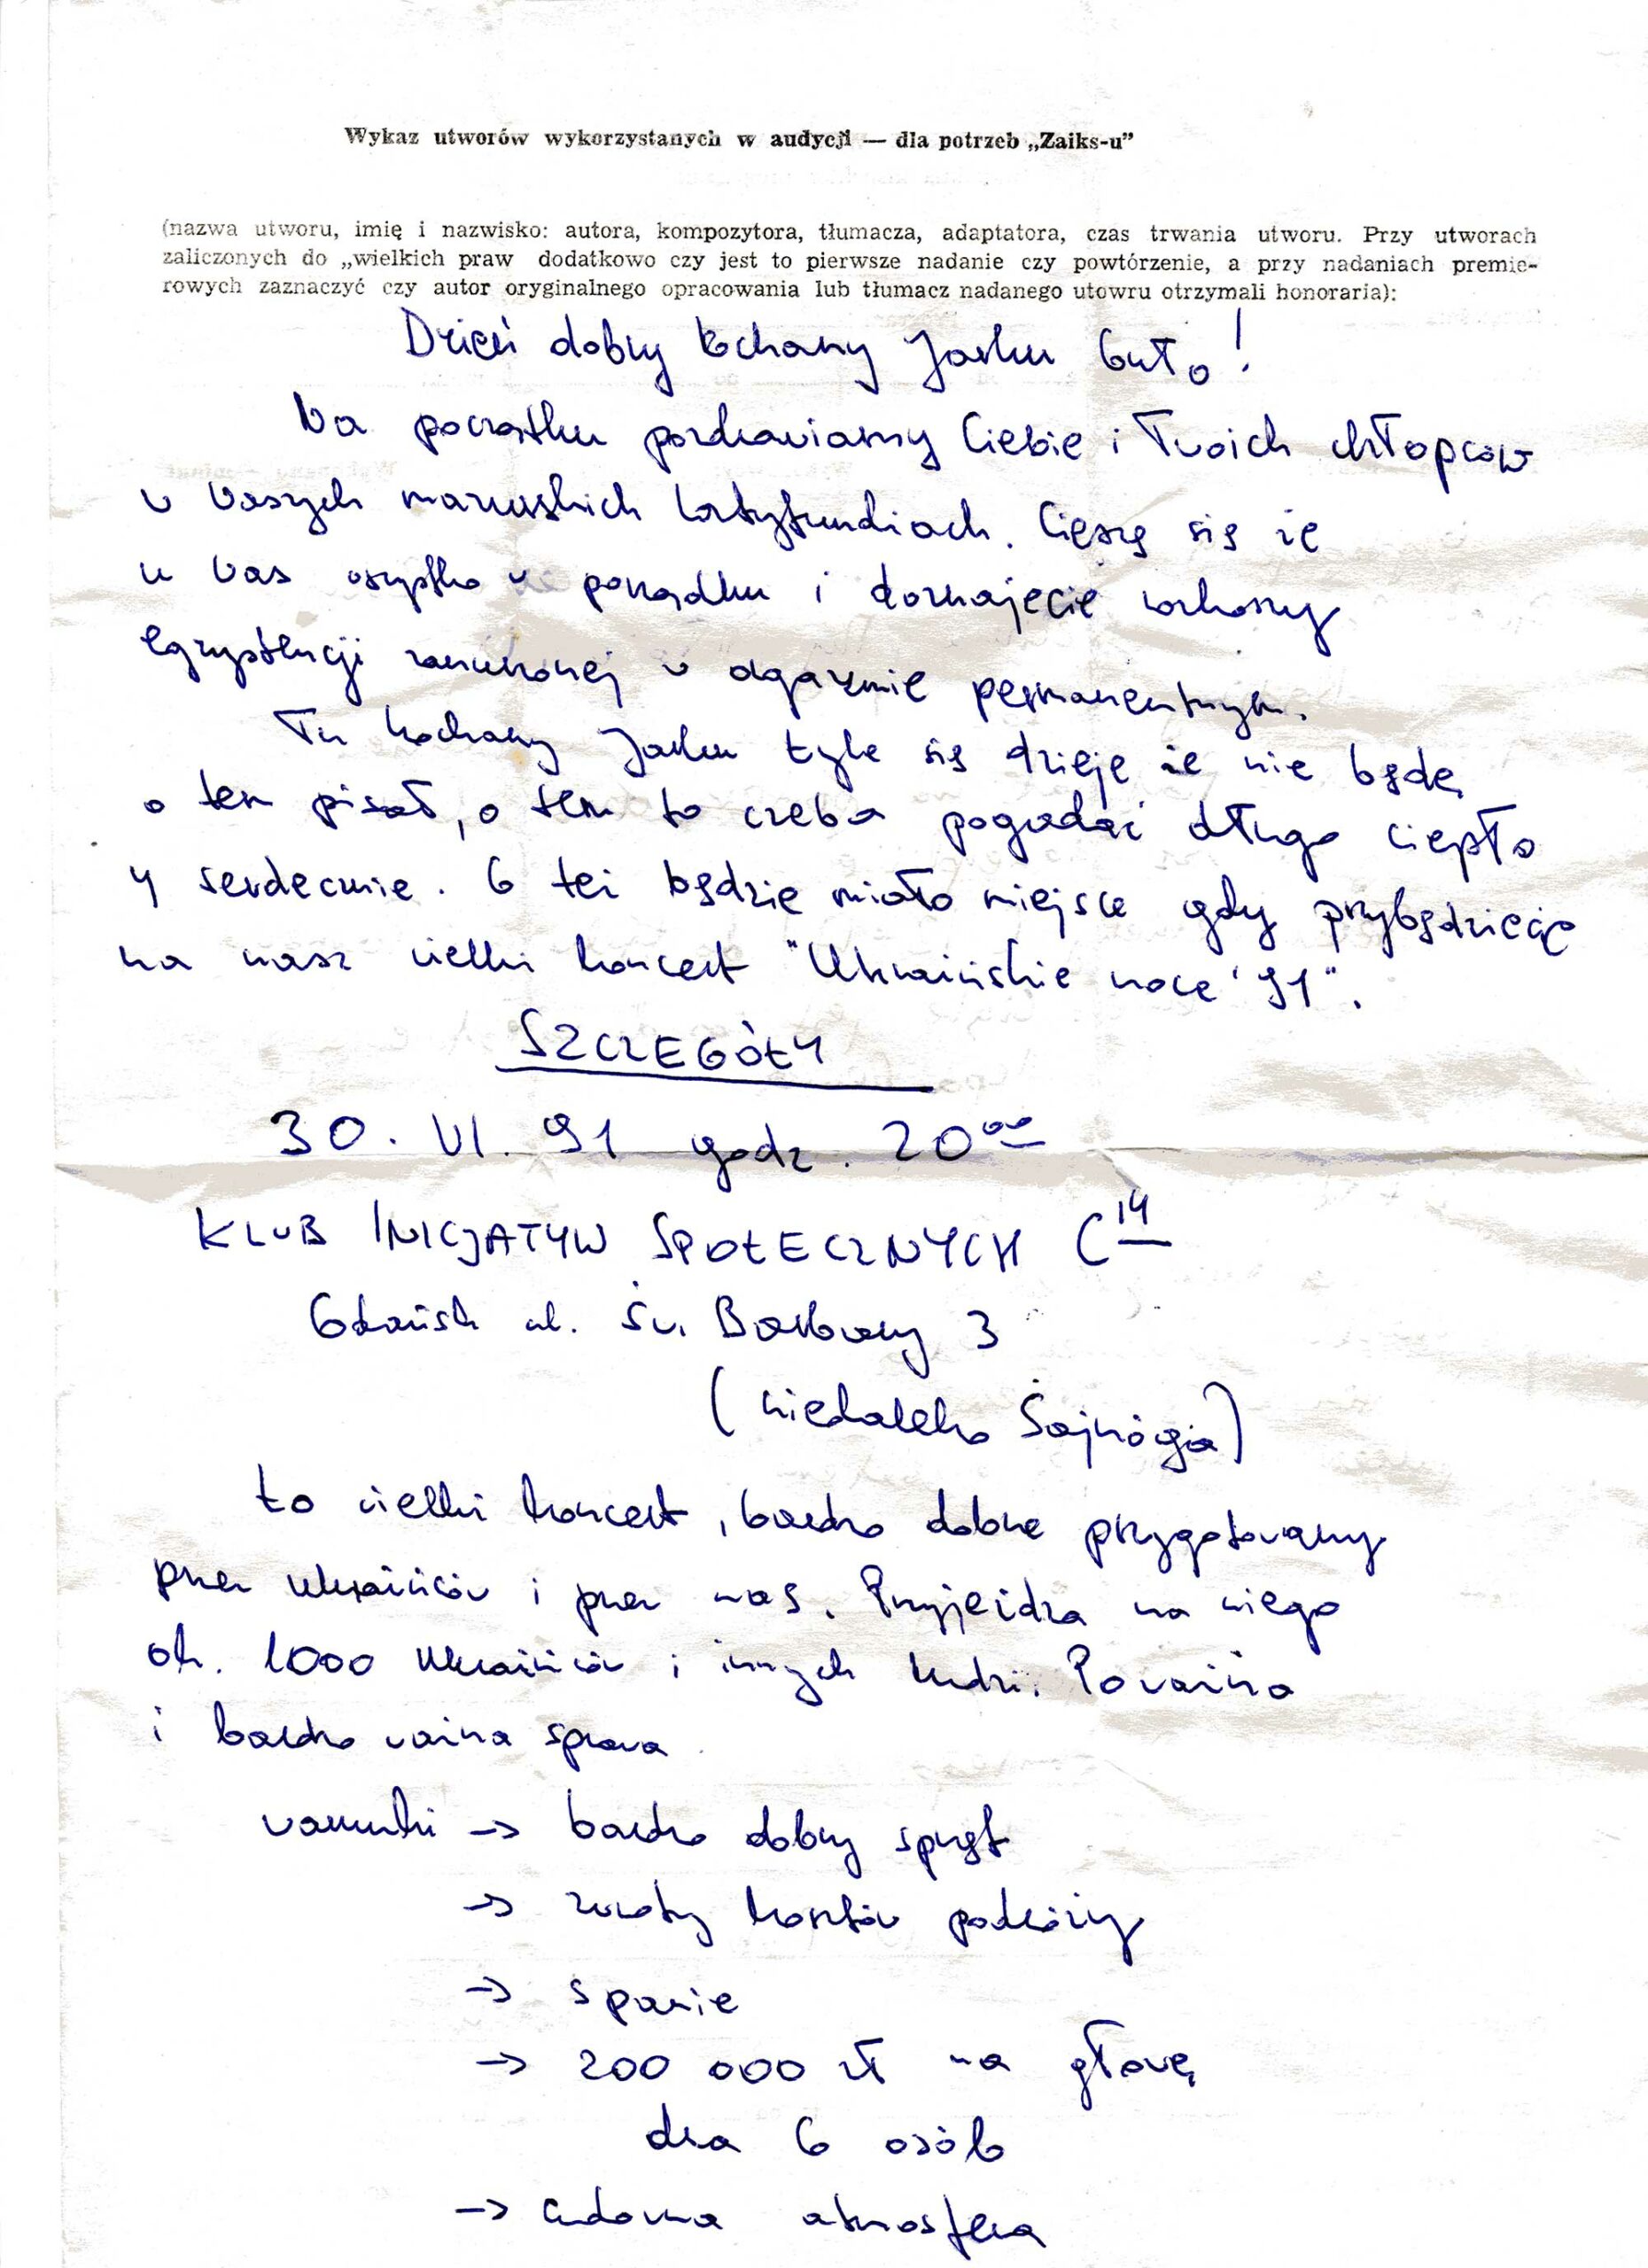 Wykaz utworów wykorzystanych w audycji — dla potrzeb „Zaiks-u”
(nazwa utworu, imię i nazwisko: autora, kompozytora, tłumacza, adaptatora, czas trwania utworu. Przy utworach
zaliczonych do „wielkich praw dodatkowo czy jest to pierwsze nadanie czy powtórzenie, a przy nadaniach premie-
rowych zaznaczyć czy autor oryginalnego opracowania lub tłumacz nadanego utowru otrzymali honoraria):
Dzień dobry Kochany Jarku Guło!
Na początku pozdrawiamy Ciebie i Twoich chłopców
w Waszych mazurskich latyfundiach. Cieszę się że
u Was wszystko w porządku i doznajecie rozkoszy
egzystencji zanurzonej w orgazmie permanentnym.
Tu kochany Jarku tyle się dzieje że nie będę
o tem pisał, o tem to czeba pogadać długo ciepło
y serdecznie. O też będzie miało miejsce gdy przybędziecie
na nasz wielki koncert "Ukraińskie noce '91".
SZCZEGÓŁY
30. VI. 91 godz. 20ºº
KLUB INICJATYW SPOŁECZNYCH C14
Gdańsk ul. Św. Barbary 3
(niedaleko Sajnóga)
to wielki koncert, bardzo dobrze przygotowany
przez Ukraińców i przez nas. Przyjeżdża na niego
ok. 1000 Ukraińców i innych ludzi. Poważna
i bardzo ważna sprawa
warunki → bardzo dobry sprzęt
→ zwroty kosztów podróży
→ spanie
→ 200 000 zł na głowę
dla 6 osób
→ cudowna atmosfera